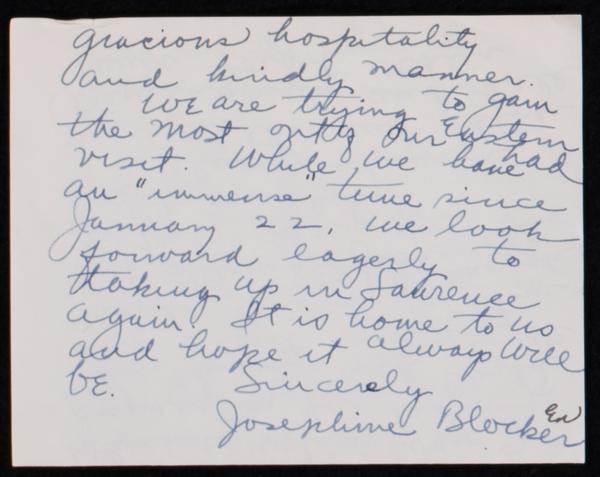 gracious hospitality
and kindly manner.
We are trying to gain
the most out of our Eastern
visit. While we have had
an "immense" time since
January 22, we look
forward eagerly to
taking up in Lawrence
again. It is home to us
and hope it always will
be. Sincerely
Josephine Blocker